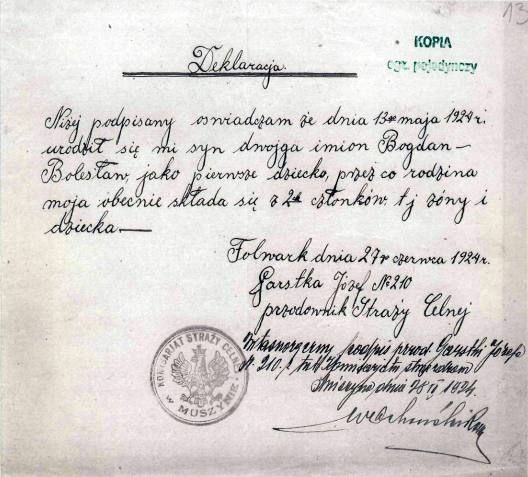 13
KOPIA
egz. pojedynczy
Deklaracja.
Niżej podpisany oświadczam że dnia 13go maja 1924 r.
urodził się mi syn dwojga imion Bogdan—
Bolesław, jako pierwsze dziecko, przez co rodzina
moja obecnie składa się z 2ch członków, tj żóny i
dziecka—
Folwark dnia 27go czerwca 1924 r.
Garstka Józef № 210
przodownik Straży Celnej
Własnoręczny podpis przod. Garstki Józefa
N. 210 tut. Komisarjatu stwierdzam
dnia 28 VI 1924.
KOMISARJAT STRAŻY CELNEJ
W MUSZYNIE